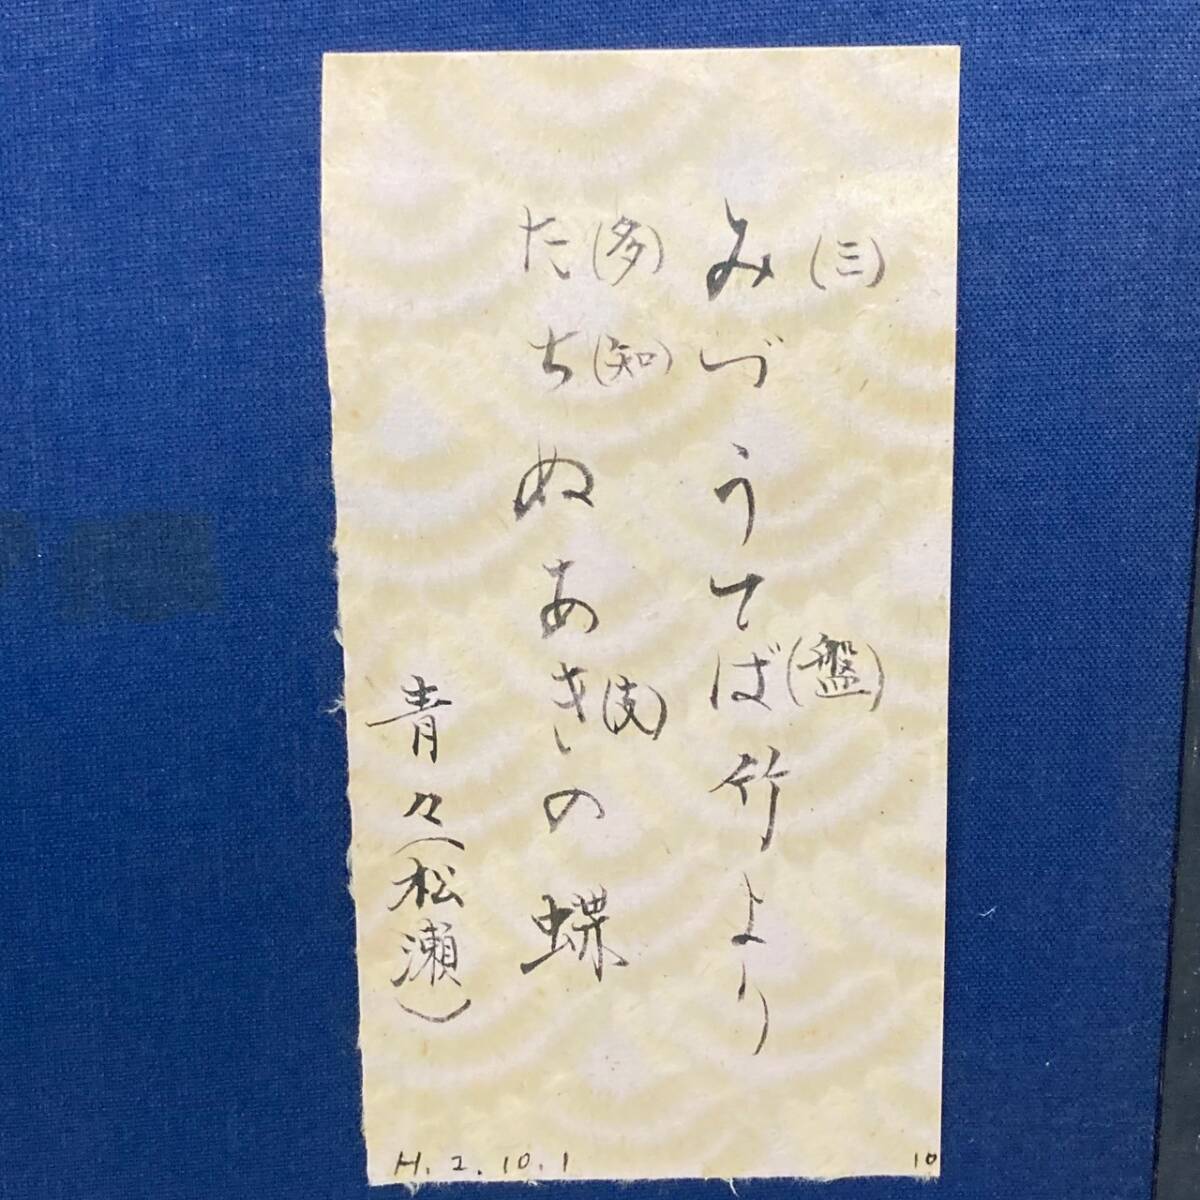 みづうてば竹より
(三)
(盤)
たちぬあきの蝶
(多)
(知)
(支)
青々(松瀬)
H.2.10.1
10